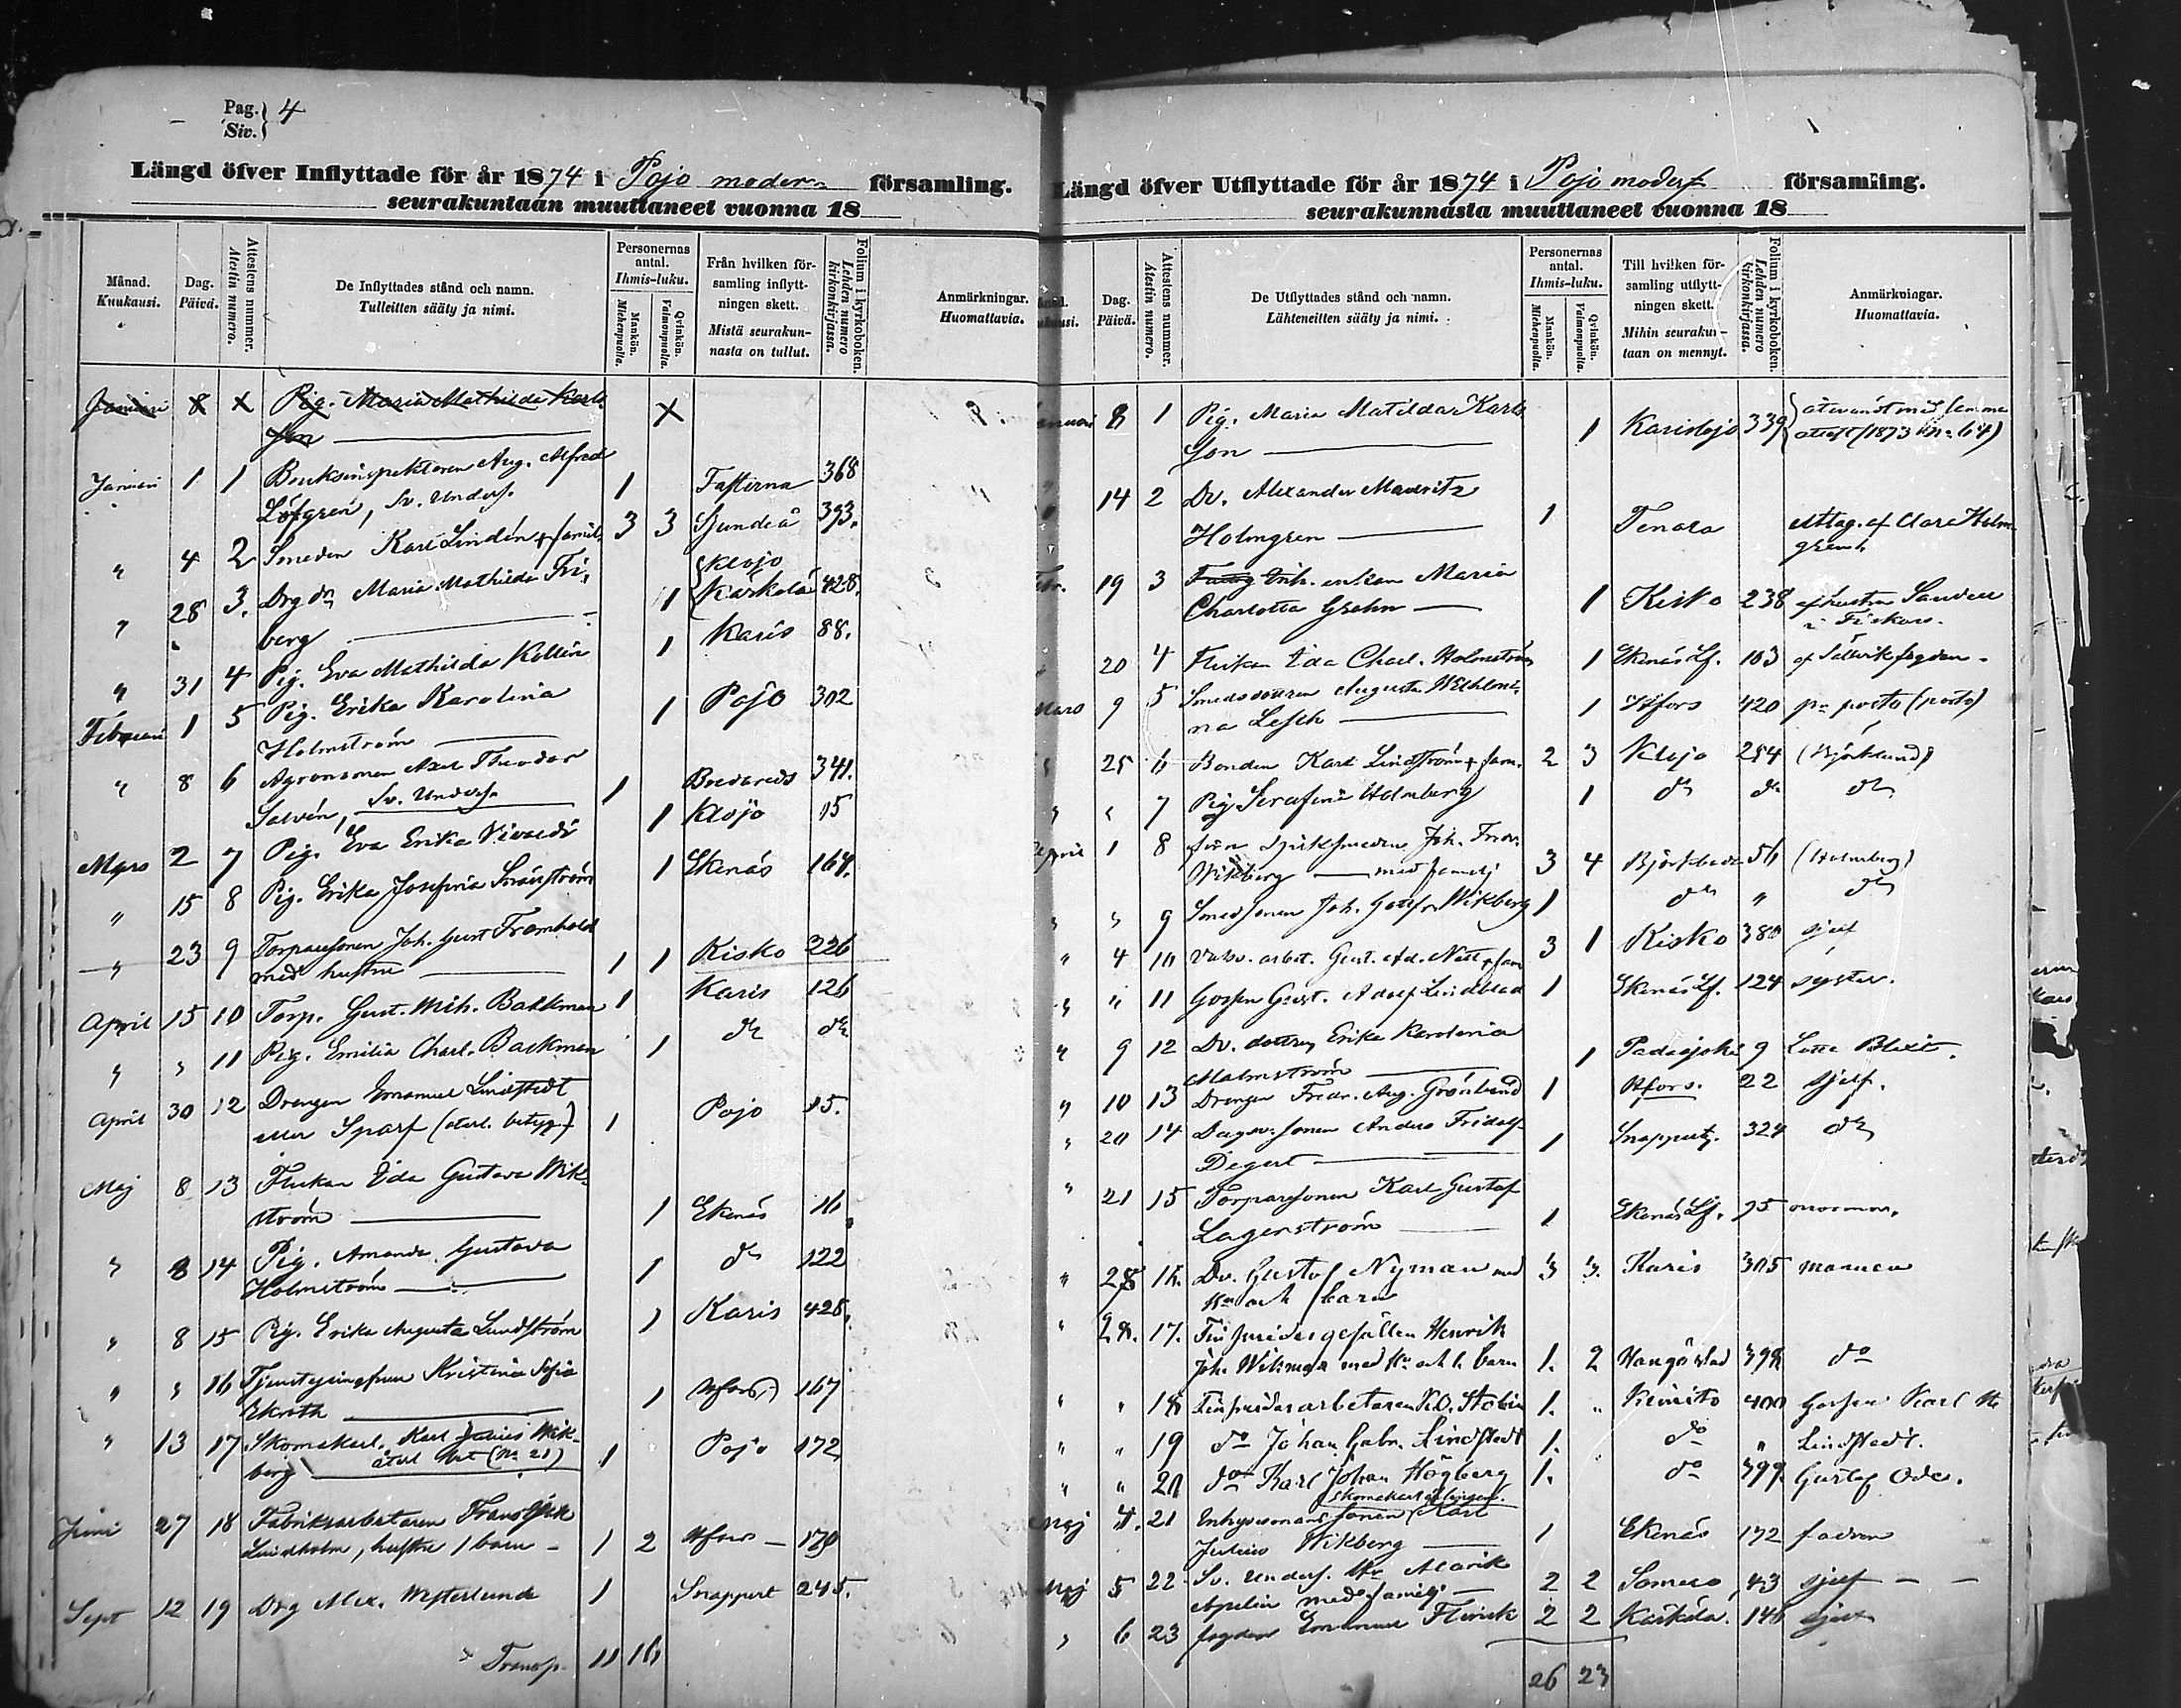 Pag. 4
Siv.
Längd öfver Inflyttade för år 1874 i Pojo moder- församling.
seurakuntaan muuttaneet vuonna 18
Månad. Kuukausi.
Dag. Päivä.
Attestens nummer. Atestin numero.
De Inflyttades stånd och namn. Tulleitten sääty ja nimi.
Personernas antal. Ihmis-luku.
Mankön. Miehenpuolia.
Qvinkön. Vaimonpuolia.
Från hvilken för-
samling inflytt-
ningen skett.
Mistä seurakun-
nasta on tullut.
Folium i kyrkoboken. Lehden numero kirkonkirjassa.
Anmärkningar. Huomattavia.
Januari 8 x Pig. Maria Mathilda Karls- x
son
Januari 1 1 Bruksinspektoren Aug. Alfred
Löfgren, Sv. Unders. 1 Fasterna 368
" 4 2 Smeden Karl Lindén + famil. 3 3 Sjundeå 393.
" 28 3. Drg dr Maria Mathilda Fri- Klojo
berg 1 Kärkölä 428.
" 31 4 Pig. Eva Mathilda Kellin 1 Karis 88.
Februari 1 5 Pig. Erika Karolina
Holmström 1 Pojo 302
" 8 6 Agronomen Axel Theodor
Salvén, Sv. Unders. 1 Bredareds 341.
Mars 2 7 Pig. Eva Erika 1 Klojo 15
" 15 8 Pig. Erika Josefina 1 Ekenäs 164.
" 23 9 Torparesonen Joh. Gust Fromhold
med hustru 1 1 Kisko 226
April 15 10 Torp. Gust. Wilh. Backman 1 Karis 126
" " 11 Pig. Emilia Charl. Backman 1 do do
April 30 12 Drengen Emanuel Lindstedt
eller Sparf (återl. betyg.) 1 Pojo 15.
Maj 8 13 Flickan Ida Gustava Wik-
ström 1 Ekenäs 16
" 8 14 Pig. Amanda Gustava
Holmström 1 do 122
" 8 15 Pig. Erika Augusta Lundström 1 Karis 428.
" " 16 Kristina Sofia
Ekroth 1 Hfors 167
" 13 17 Skomakarl. Karl Julius Wik-
berg återl. (No 21) 1 Pojo 172
Juni 27 18 Fabriksarbetaren Frans
Lindholm, hustru 1 barn - 1 2 Hfors - 170
Sept 12 19 Drg Alex. Westerlund 1 Snappert 245.
Transp. 11 16
Längd öfver Utflyttade för år 1874 i Pojo moderf församling.
seurakunnasta muuttaneet vuonna 18
Dag. Päivä.
Attestens nummer. Atestin numero.
De Utflyttades stånd och namn. Lähteneitten sääty ja nimi.
Personernas antal. Ihmis-luku.
Mankön. Miehenpuolia.
Qvinkön. Vaimonpuolia.
Till hvilken för-
samling utflytt-
ningen skett.
Mihin seurakun-
taan on mennyt.
Folium i kyrkoboken. Lehden numero kirkonkirjassa.
Anmärkningar. Huomattavia.
Januari 8 1 Pig. Maria Matilda Karls- återvändt med samma
son 1 Karislojo 339 attest (1873 No 64)
14 2 Dr. Alexander Mauritz
Holmgren 1 Tenala uttag. af Clara Holm-
gren.
Febr. 19 3 Enh. enkan Maria
Charlotta Grahn 1 Kisko 238 af hustru Sandell
i Fiskars.
20 4 Flickan Ida Charl. Holmström 1 Ekenäs Lf. 103 af
Mars 9 5 Smedsdottren Augusta Wilhelmi-
na Lesch 1 Hfors 420 pr posto (posto)
25 6 Bonden Karl Lindström + fam. 2 3 Klojo 254 (Björklund)
" " 7 Pig Serafina Holmberg 1 do do do
April 1 8 Joh. Fredr.
Wikberg med familj 3 4 Björkboda 56 (Holmberg)
" " 9 Smedsonen Joh. Gottfr. Wikberg 1 do " do
" 4 10 arbet. Gust. Ad. + fam 3 1 Kisko 380 sjelf
" " 11 Gossen Gust. Adolf Lindblad 1 Ekenäs Lf. 124 syster.
" 9 12 Dr. dottren Erika Karolina
Malmström 1 Padasjoki 9 Lotta Blixt.
" 10 13 Drengen Fredr. Aug. Grönlund 1 Hfors. 22 sjelf.
" 20 14 Dagsv. sonen Anders Fridolf
Degert 1 Snappertg. 324 do
" 21 15 Torparesonen Karl Gustaf
Lagerström 1 Ekenäs Lf. 95 mormor.
" 28 16. Dr. Gustaf Nyman med
Hu och barn 3 3. Karis 305 mannen
" 28. 17. Henrik
Joh. Wikman med Hu och 1 barn 1. 2 Hangö stad 398 do
" " 18 arbetaren K.O. 1. " Kimito 400 Gossen Karl
" " 19 do Johan Gabr. Lindstedt 1. do " Lindstedt.
" " 20 do Karl Johan Högberg 1. do 399. Gustaf Ode.
skomakarlärlingen
Maj 4. 21 Inhysesmans sonen Karl
Julius Wikberg 1 Ekenäs 172 fadren
Maj 5 22 Sv. Unders. Alarik
Apelin med familj 2 2 Somero 43 sjelf - -
" 6 23 fogden Emanuel Flinck 2 2 Kärkölä. 146 sjelf
26 23